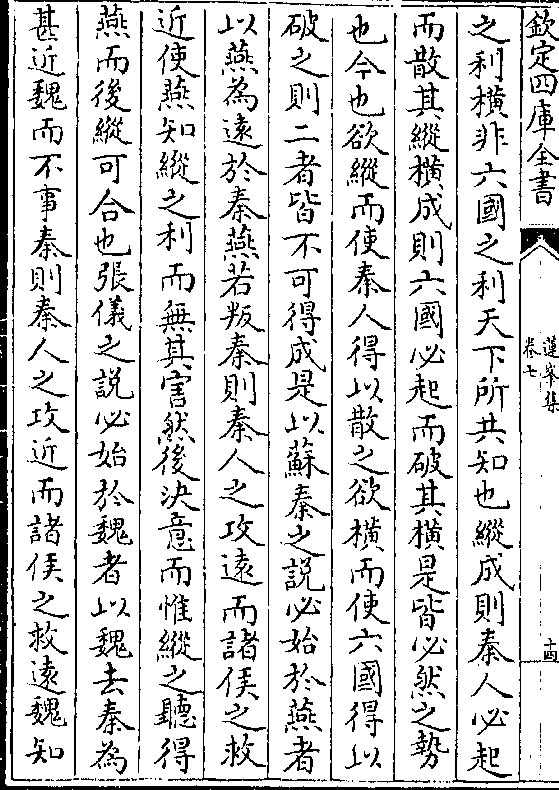 欽定四庫全書
蓮峯集
卷七
十四
之利橫非六國之利天下所共知也縱成則秦人必起
而散其縱橫成則六國必起而破其橫是皆必然之勢
也今也欲縱而使秦人得以散之欲橫而使六國得以
破之則二者皆不可得成是以蘇秦之說必始於燕者
以燕為遠於秦燕若叛秦則秦人之攻遠而諸侯之救
近使燕知縱之利而無其害然後決意而惟縱之聽得
燕而後縱可合也張儀之說必始於魏者以魏去秦為
甚近魏而不事秦則秦人之攻近而諸侯之救遠魏知